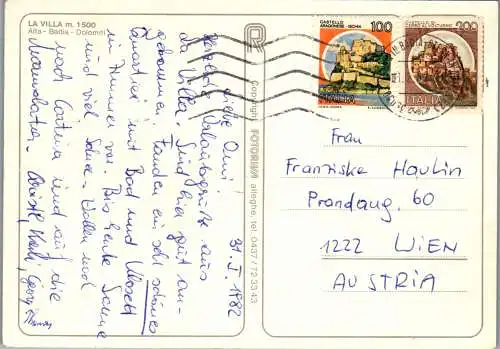 LA VILLA m. 1500
Alta - Badia - Dolomiti
31. I. 1982
Liebe Omi!
Herzliche Urlaubsgrüße aus
La Villa. Sind hier gut an-
gekommen. Fanden ein sehr schönes
Quartier mit Bad und Wasch
im Zimmer vor. Bis heute Sonne
und viel Schnee. Wollen und
nach Cortina und auf die
Marmolata.
Copyright FOTORIVA alleghe, tel. 0437/72 33 43
CASTELLO
ARAGONESE - ISCHIA
100
ITALIA
200
ITALIA
Frau
Franziska Haulin
Prandaug. 60
1222 WIEN
AUSTRIA